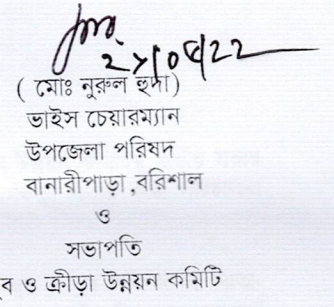 ২১/০৫/22
( মোঃ নুরুল হুদা)
ভাইস চেয়ারম্যান
উপজেলা পরিষদ
বানারীপাড়া,বরিশাল
ও
সভাপতি
ব ও ক্রীড়া উন্নয়ন কমিটি